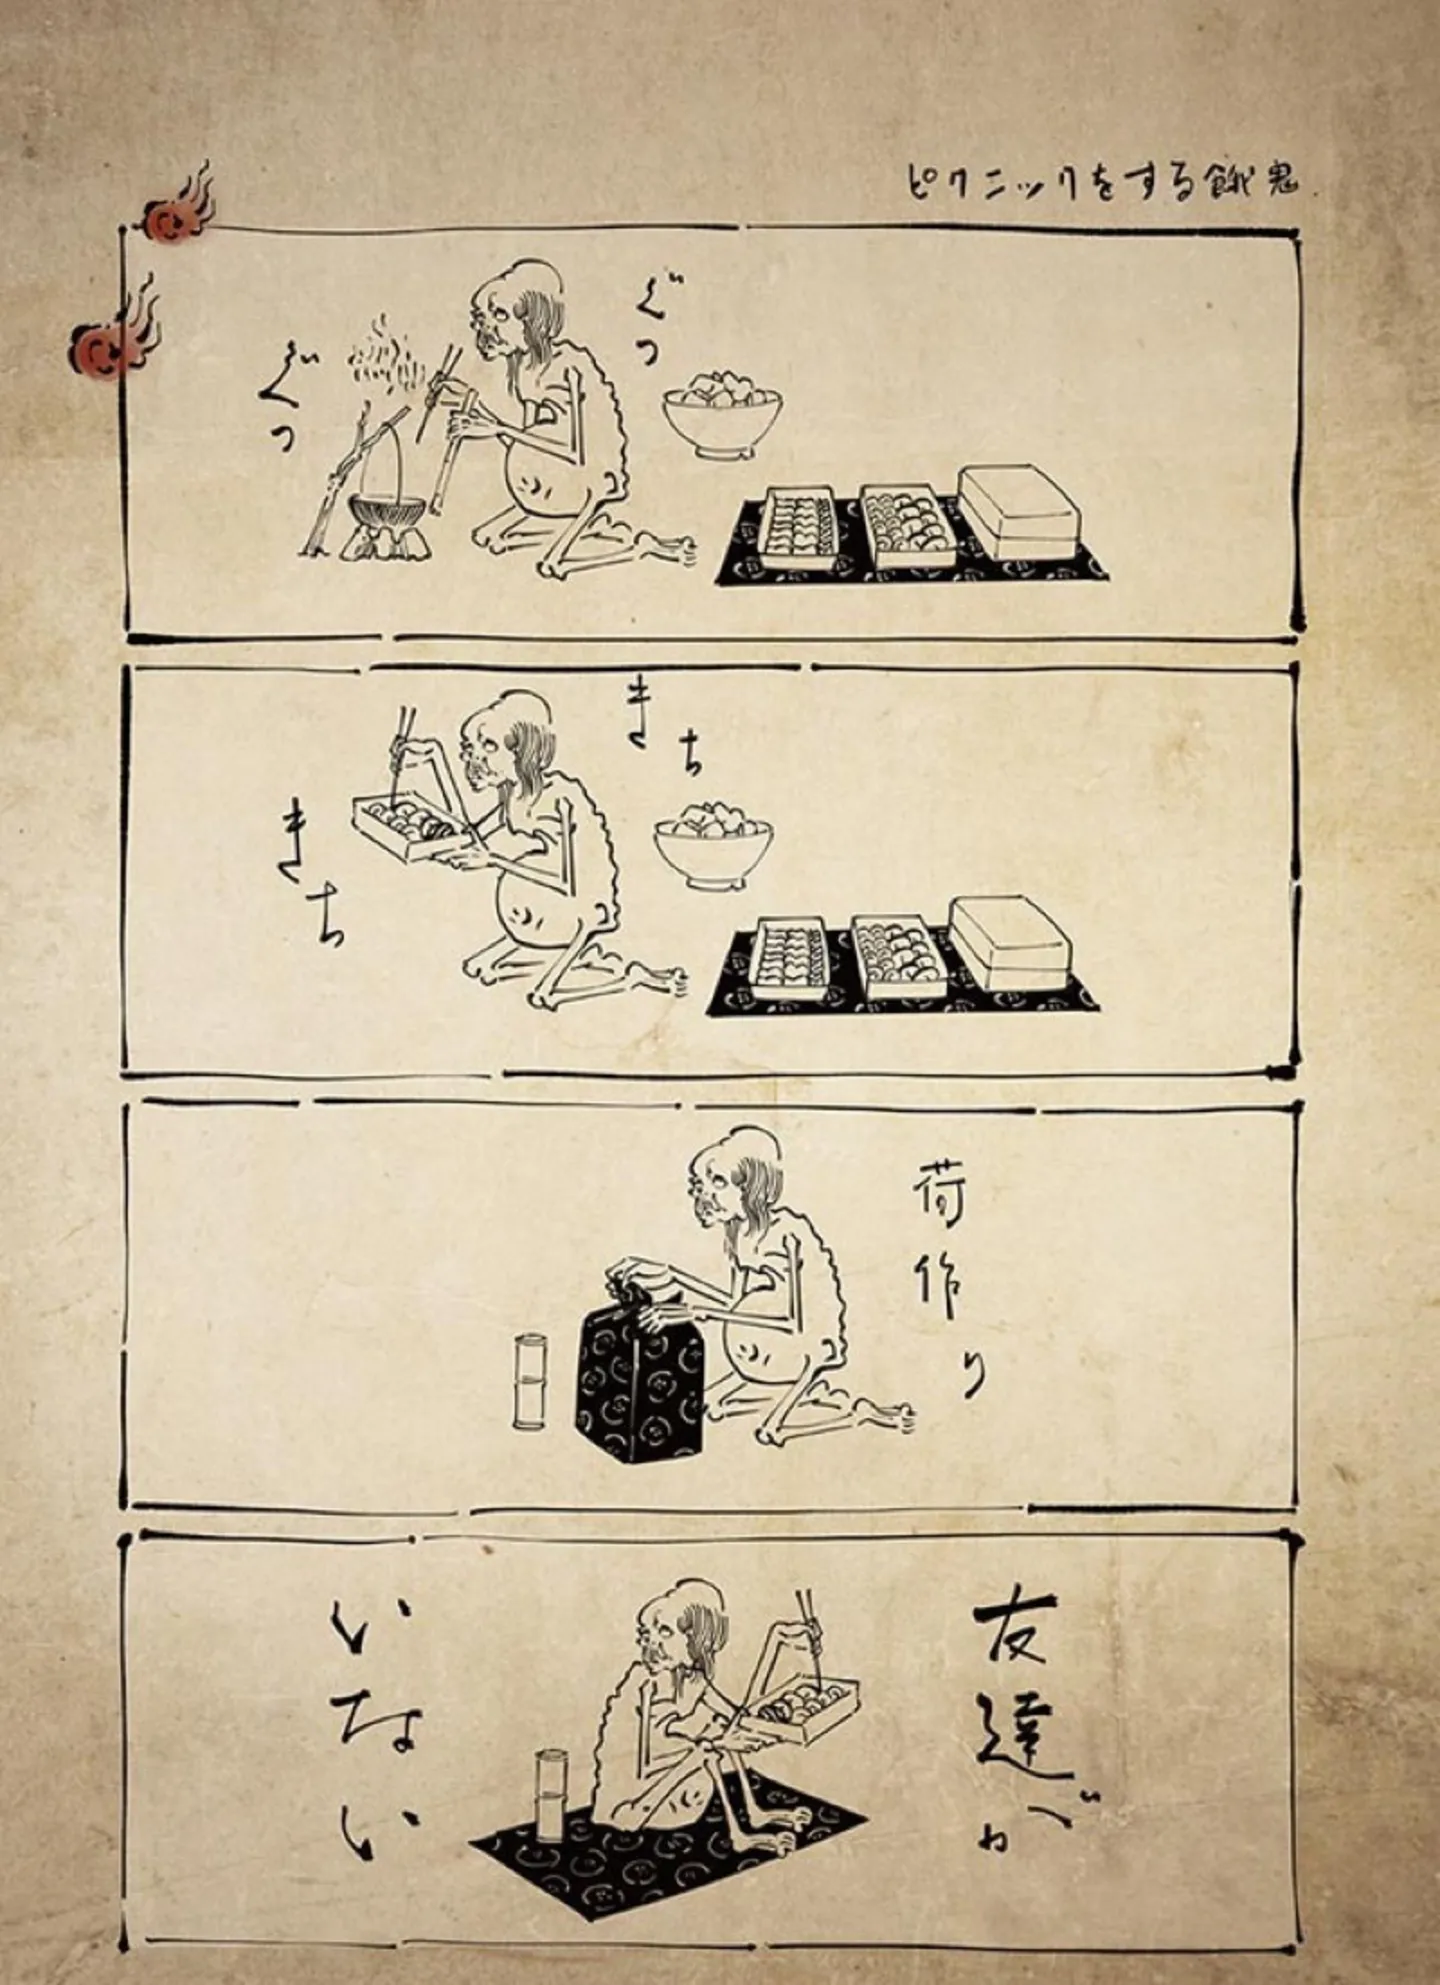 ピクニックをする餓鬼.
ぐつ
ぐつ
きち
きち
荷作り
友達が
いない